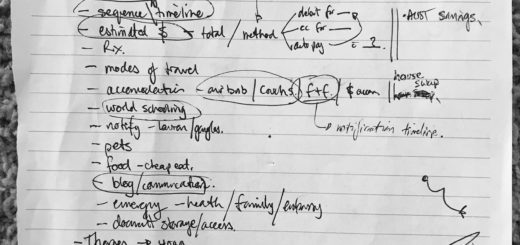 - sequence / timeline
- estimated $ → total / method
debit for
cc for
autopay
?
• Acct savings
- Rx.
- modes of travel
- accomodation - airbnb / Couchs / f+f. / $ accom
house swap
- world schooling
- notify -
→ notification timeline.
- pets
- food - cheap eat.
- blog / communication.
- emergency - health / family /
- document storage / access.